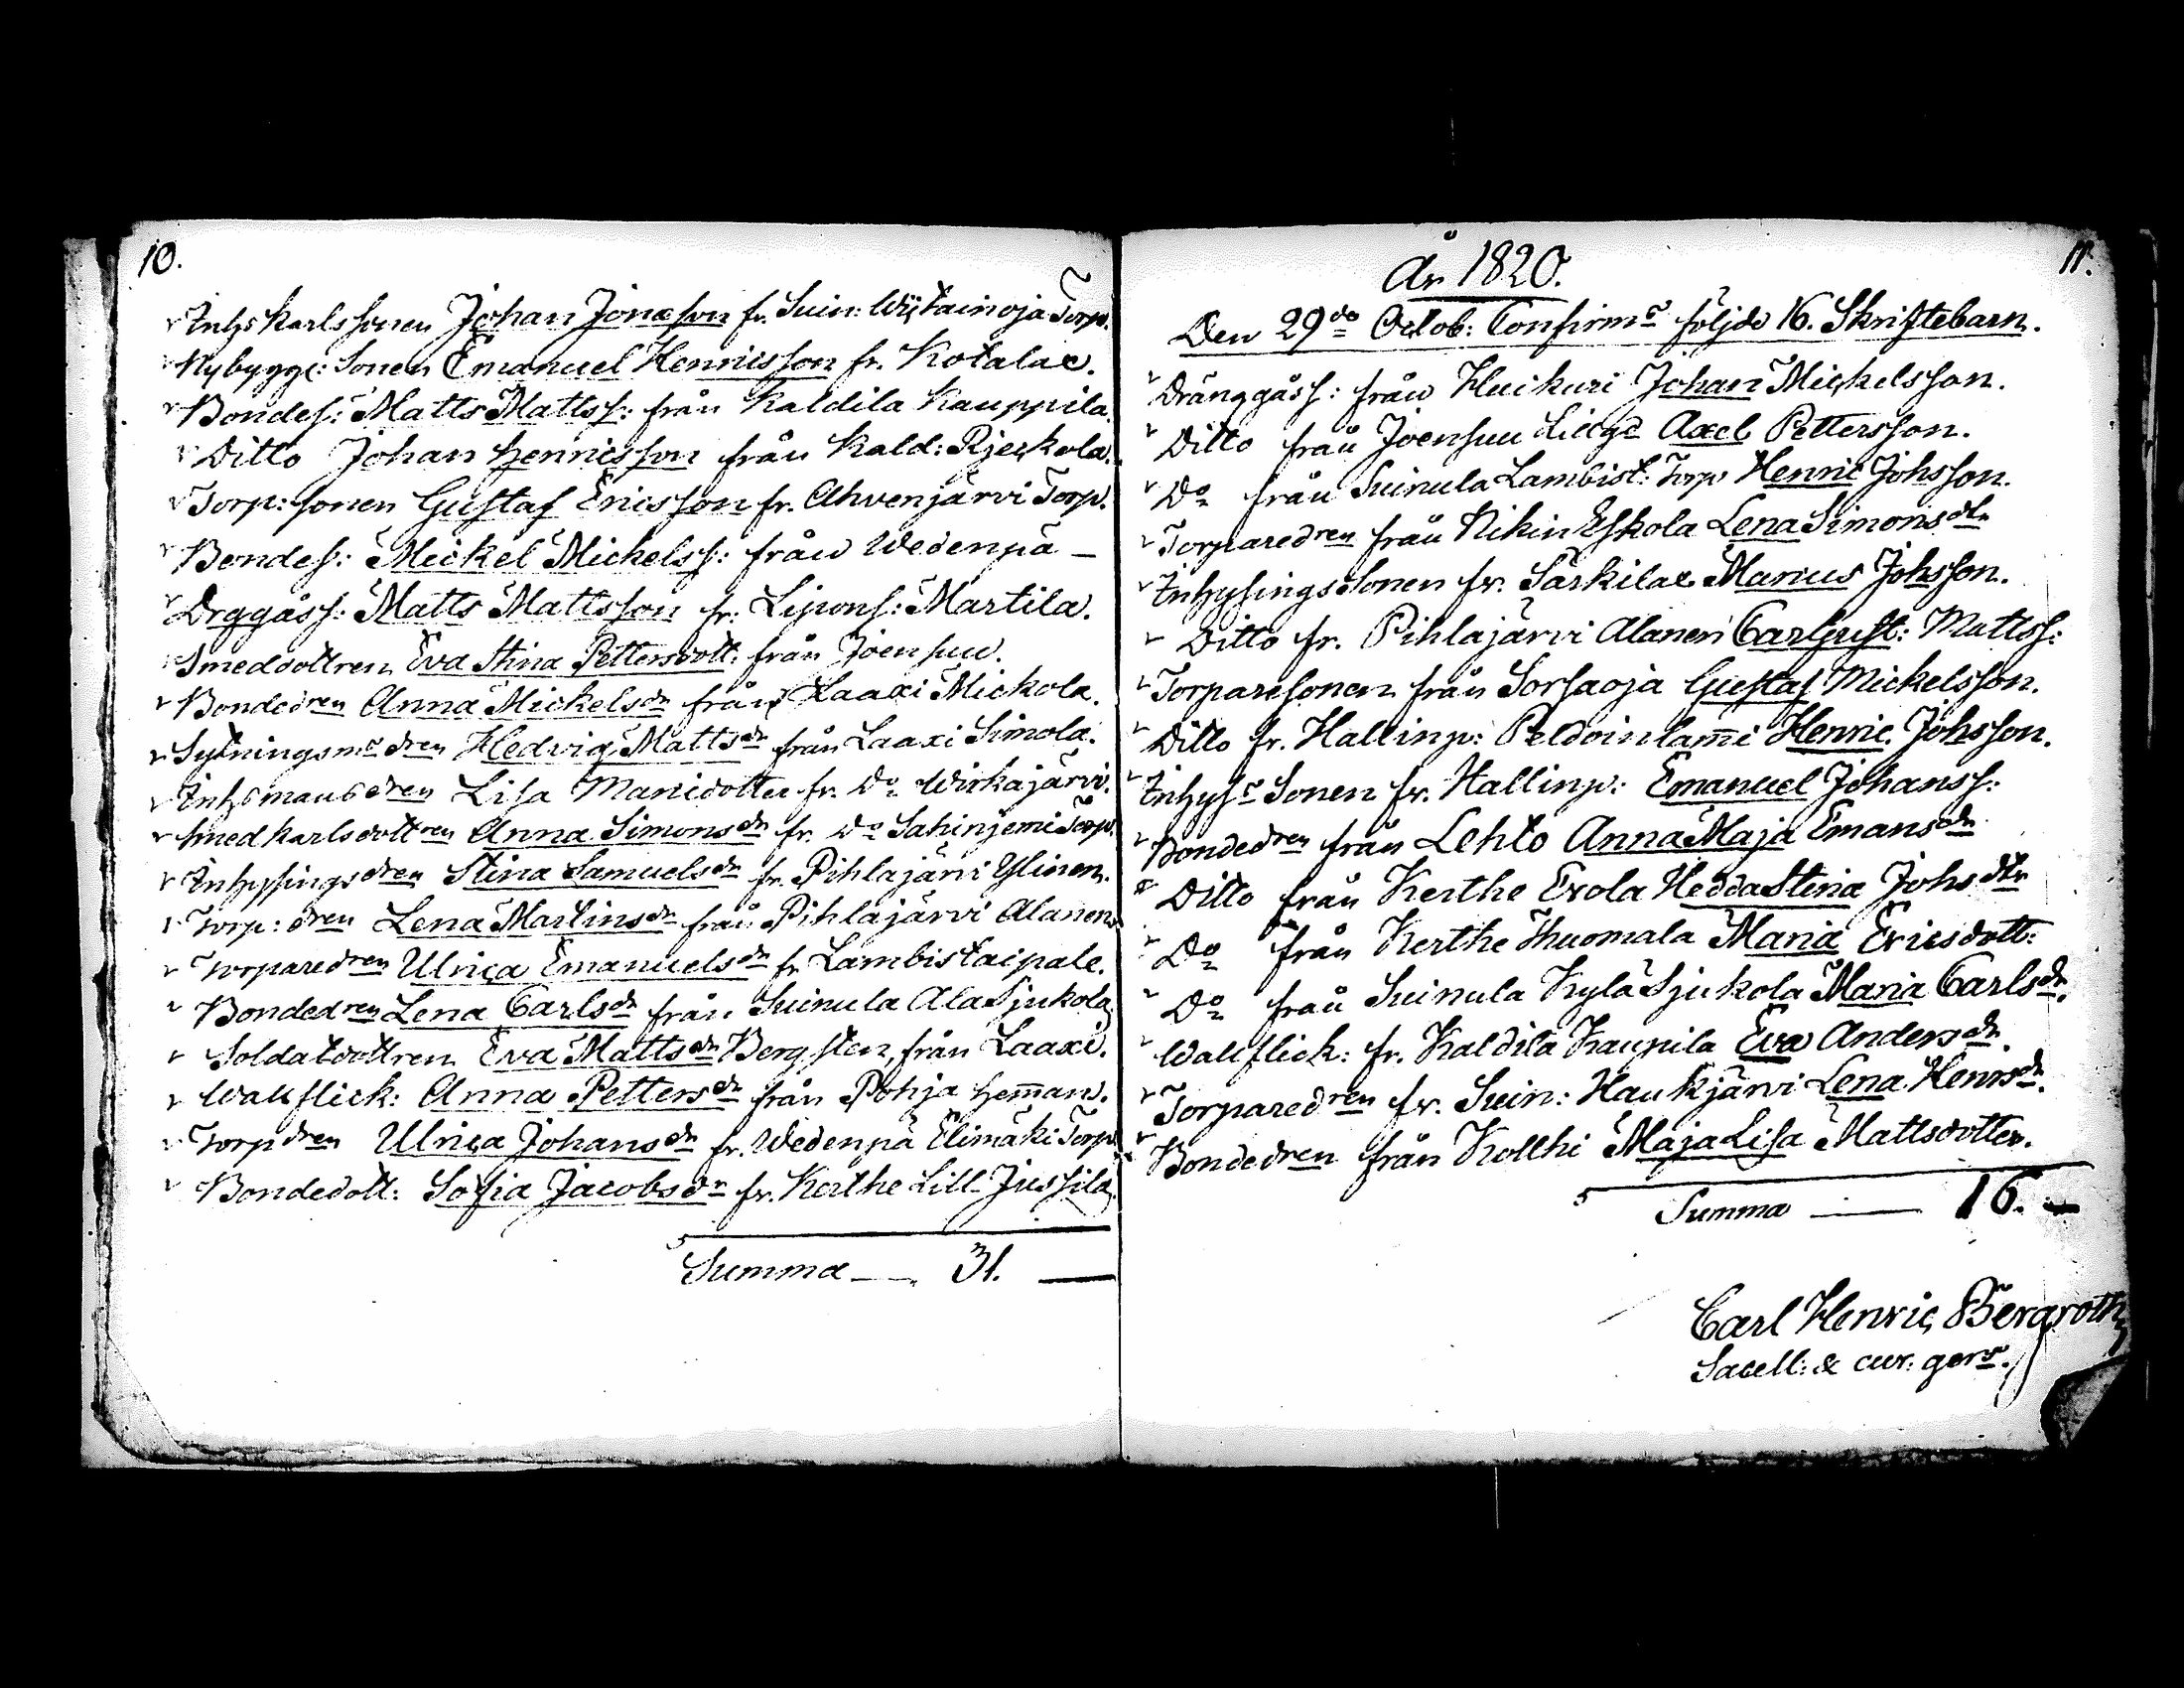 10.
Inhs karlssonen Johan Jonasson fr. Suin: Wijtainoja Torp.
Nybygg: Sonen Emanuel Henricsson fr. Kotalax.
Bondes: Matts Mattss: från Kaldila Kauppila
Ditto Johan Henricsson från Kald: Rjeskola.
Torp: sonen Gustaf Ericsson fr. Ahvenjärvi Torp.
Bondes: Mickel Mickelss: från Wedenpä —
Drggåss: Matts Mattsson fr. Lipons: Martila.
Smedsdottren Eva Stina Pettersdott: från Joensuu.
Bondedren Anna Mickelsdr från Laaxi Mickola.
Sytningsms dren Hedvig Mattsdr från Laaxi Simola.
Inhsmansdren Lisa Mariedotter fr. Do Wirkajärvi.
Smedkarlsdottren Anna Simonsdr fr. Do Sahinjemi Torp.
Inhysingsdren Stina Samuelsdr fr. Pihlajärvi Ylinen.
Torp: dren Lena Martinsdr från Pihlajärvi Alanen
Torparedren Ulrica Emanuelsdr fr Lambistaipale.
Bondedren Lena Carlsdr från Suinula Ala Sjukola
Soldatdottren Eva Mattsdr Bergsten, från Laaxi.
Wallflick: Anna Pettersdr från Pohja Hemans.
Torpdren Ulrica Johansdr fr. Wedenpä Elimäki Torp
Bondedott: Sofia Jacobsdr fr. Kerthe Lill-Jussila
Summa — 31. —
År 1820.
11.
Den 29de Octob: Confirms följde 16. Skriftebarn.
Dränggåss: från Huikuri Johan Mickelsson.
Ditto från Joensuu Lillgd Axel Pettersson.
Do från Suinula Lambist: Torp Henric Johsson.
Torparedren från Nikin Eskola Lena Simonsdr
Inhysings Sonen fr. Särkilax Marcus Johsson.
Ditto fr. Pihlajärvi Alanen Carl Gust: Mattss:
Torparesonen från Sorsaoja Gustaf Mickelsson.
Ditto fr. Hallinp: Peldoinlami Henric Johsson.
Inhyss Sonen fr. Hallinp: Emanuel Johanss:
Bondedren från Lehto Anna Maja Emansdr
Ditto från Kerthe Erola Hedda Stina Johsdtr
Do från Kerthe Thuomala Maria Ericsdott:
Do från Suinula Kylä Sjukola Maria Carlsdr.
Wallflick: fr. Kaldila Kaupila Eva Andersdr.
Torparedren fr. Suin: Haukjärvi Lena Henrsdr.
Bondedren från Kollhi Maja Lisa Mattsdotter.
Summa — 16. —
Carl Henric Bergroth
Sacell: & cur: gers.